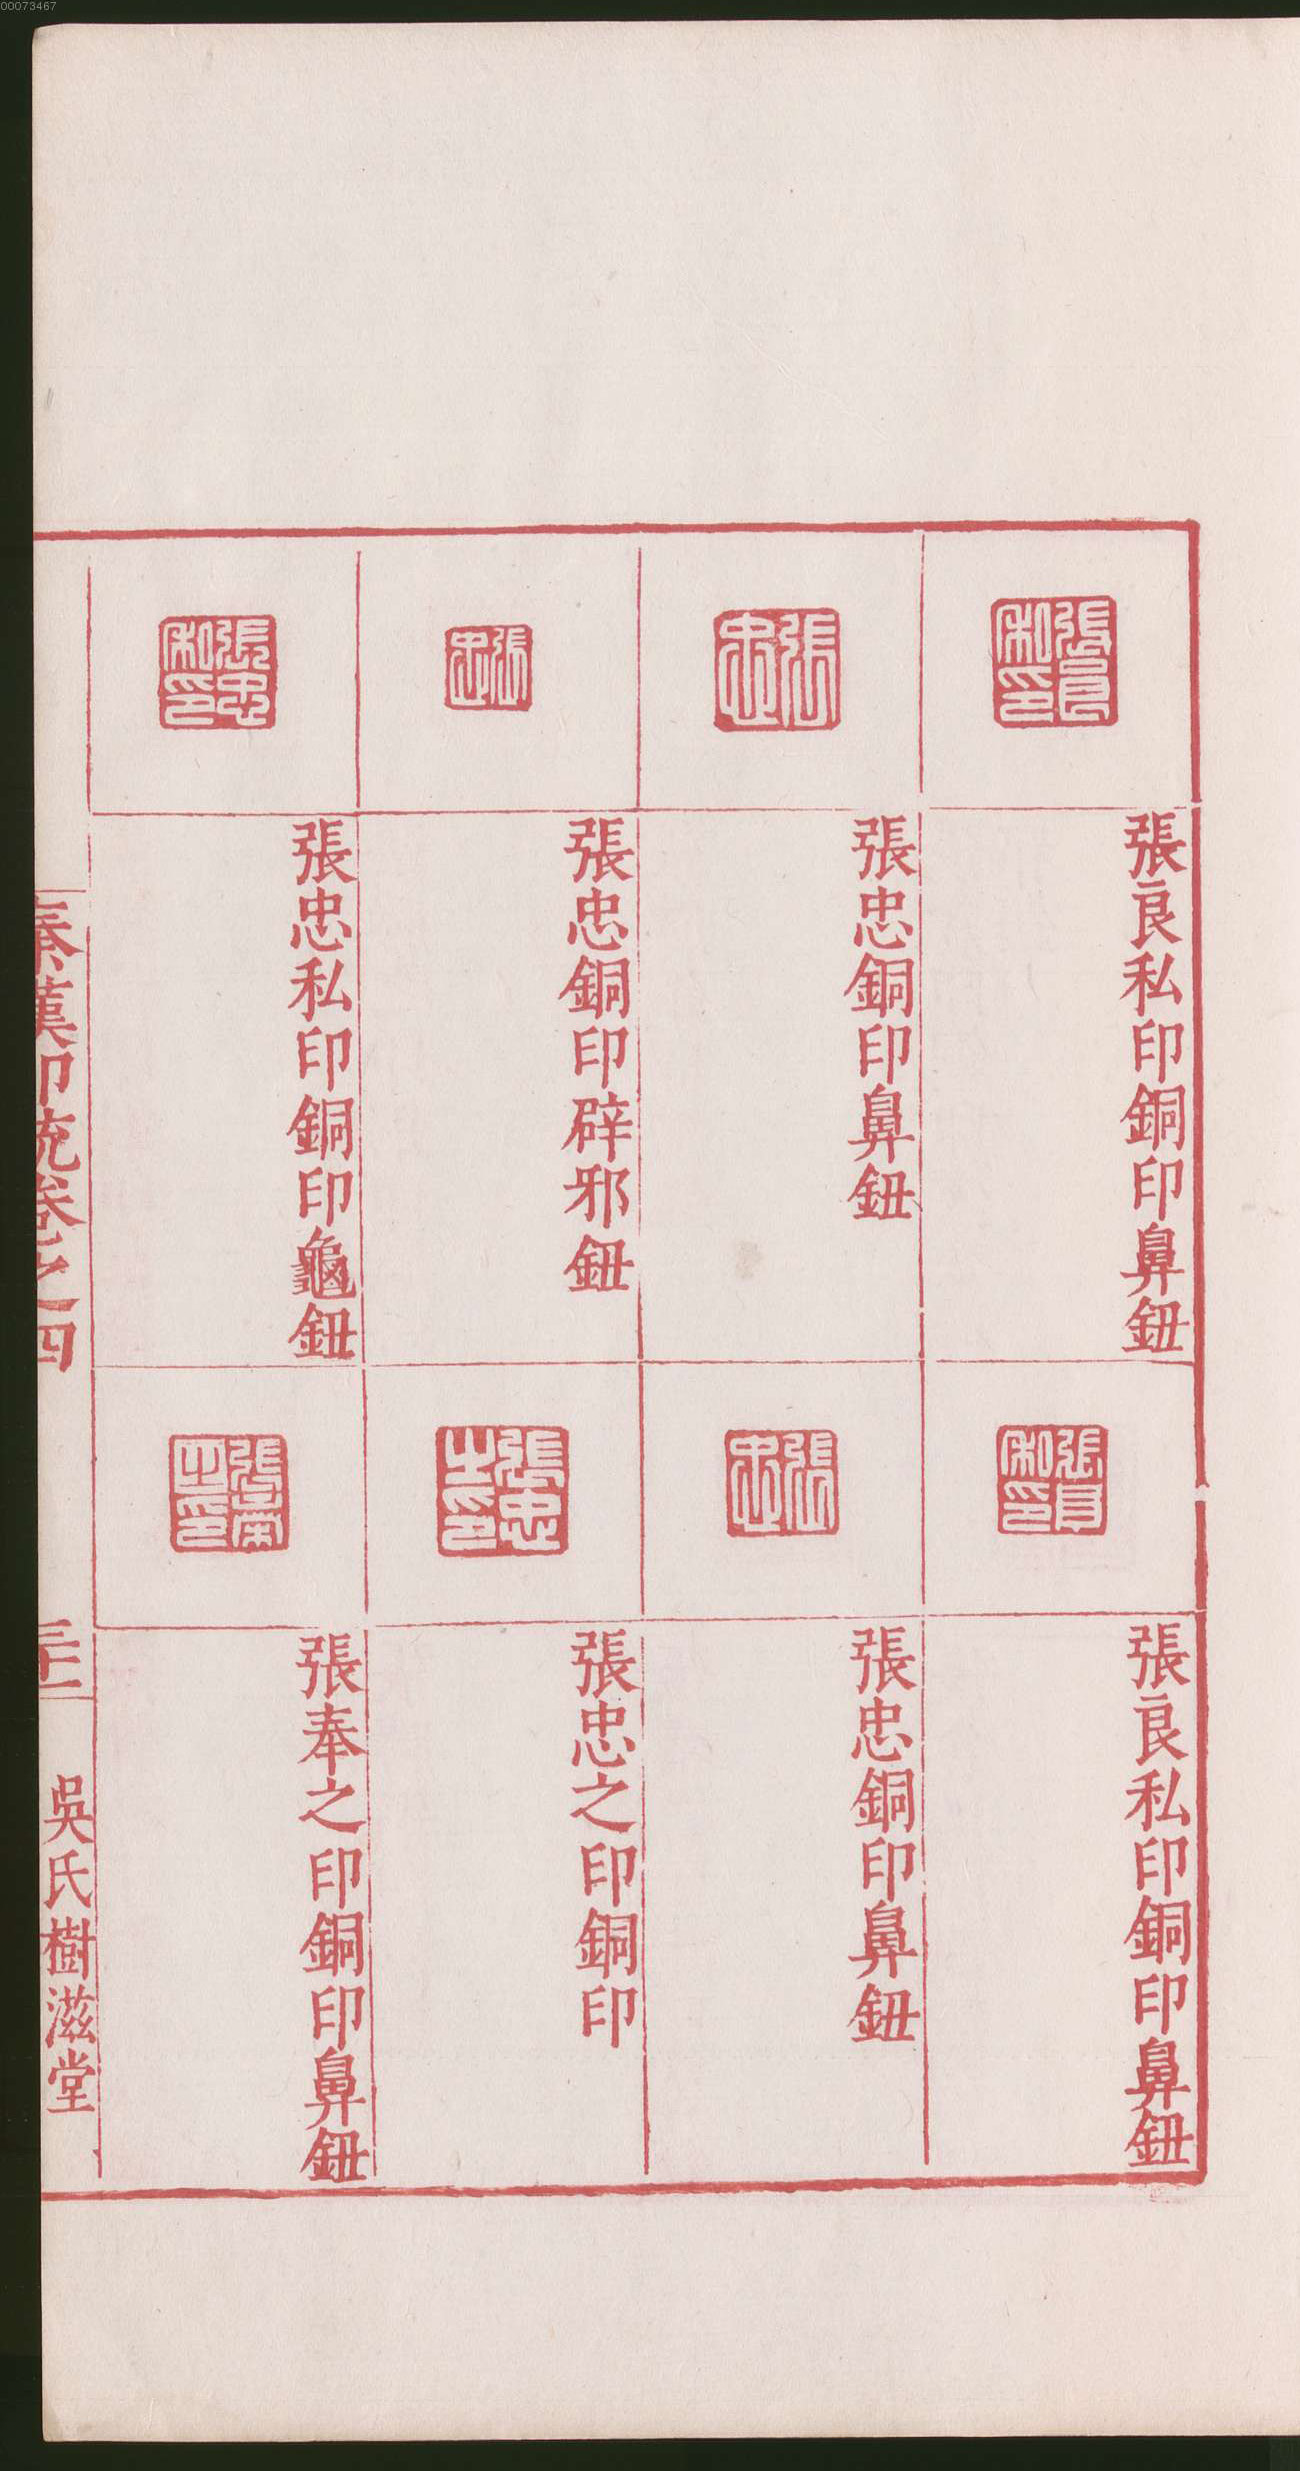 00073467
張良私印
張良私印銅印鼻鈕
張忠
張忠銅印鼻鈕
張忠
張忠銅印辟邪鈕
張忠私印
張忠私印銅印龜鈕
張良私印
張良私印銅印鼻鈕
張忠
張忠銅印鼻鈕
張忠之印
張忠之印銅印
張奉之印
張奉之印銅印鼻鈕
秦漢印統卷之四
吳氏樹滋堂